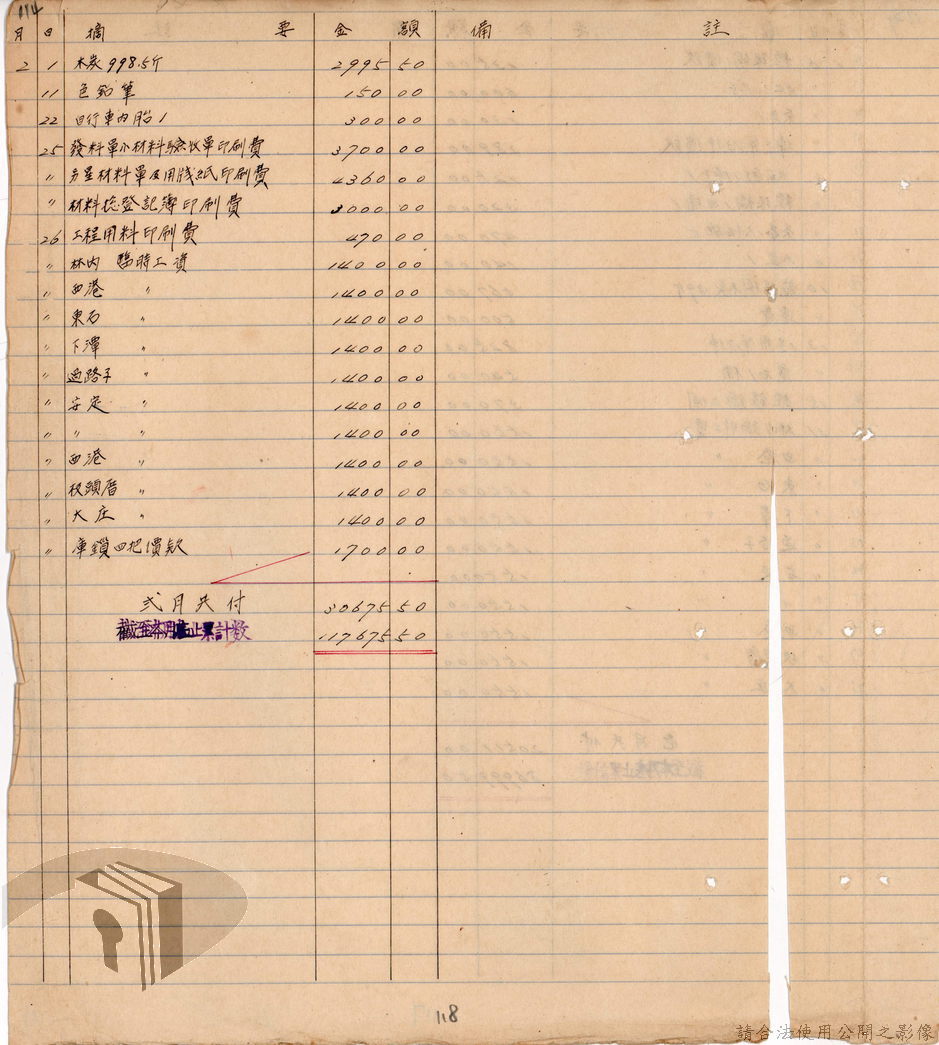 114
月 日 摘 要 金 額 備 註
2 1 木炭998.5斤 2995 50
11 色鉛筆 150 00
22 自行車內胎1 300 00
25 發料單小材料驗收單印刷費 3700 00
〃 另星材料單及用牋紙印刷費 4360 00
〃 材料總登記簿印刷費 3000 00
26 工程用料印刷費 470 00
〃 林內 臨時工資 1400 00
〃 西港 〃 1400 00
〃 東石 〃 1400 00
〃 下潭 〃 1400 00
〃 過路子 〃 1400 00
〃 安定 〃 1400 00
〃 〃 〃 1400 00
〃 西港 〃 1400 00
〃 頭厝 〃 1400 00
〃 大庄 〃 1400 00
〃 庫鎖四把價款 1700 00
弍月共付 30675 50
截至本月底止累計數 117675 50
118
請合法使用公開之影像